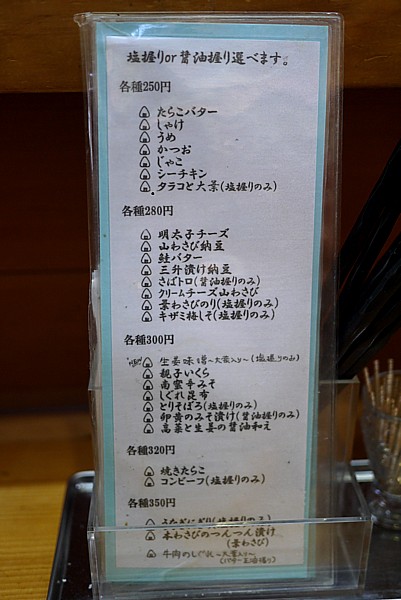 塩握りor醤油握り選べます。
各種250円
たらこバター
しゃけ
うめ
かつお
じゃこ
シーチキン
タラコと大葉(塩握りのみ)
各種280円
明太子チーズ
山わさび納豆
鮭バター
三升漬け納豆
さばトロ(醤油握りのみ)
クリームチーズ山わさび
葉わさびのり(塩握りのみ)
キザミ梅しそ(塩握りのみ)
各種300円
生姜味噌〜大葉入り〜(塩握りのみ)
親子いくら
南蛮辛みそ
しぐれ昆布
とりそぼろ(塩握りのみ)
卵黄のみそ漬け(醤油握りのみ)
高菜と生姜の醤油和え
各種320円
焼きたらこ
コンビーフ(塩握りのみ)
各種350円
うなぎにぎり(塩握りのみ)
本わさびのつんつん漬け
(葉わさび)
牛肉のしぐれ〜大葉入り〜